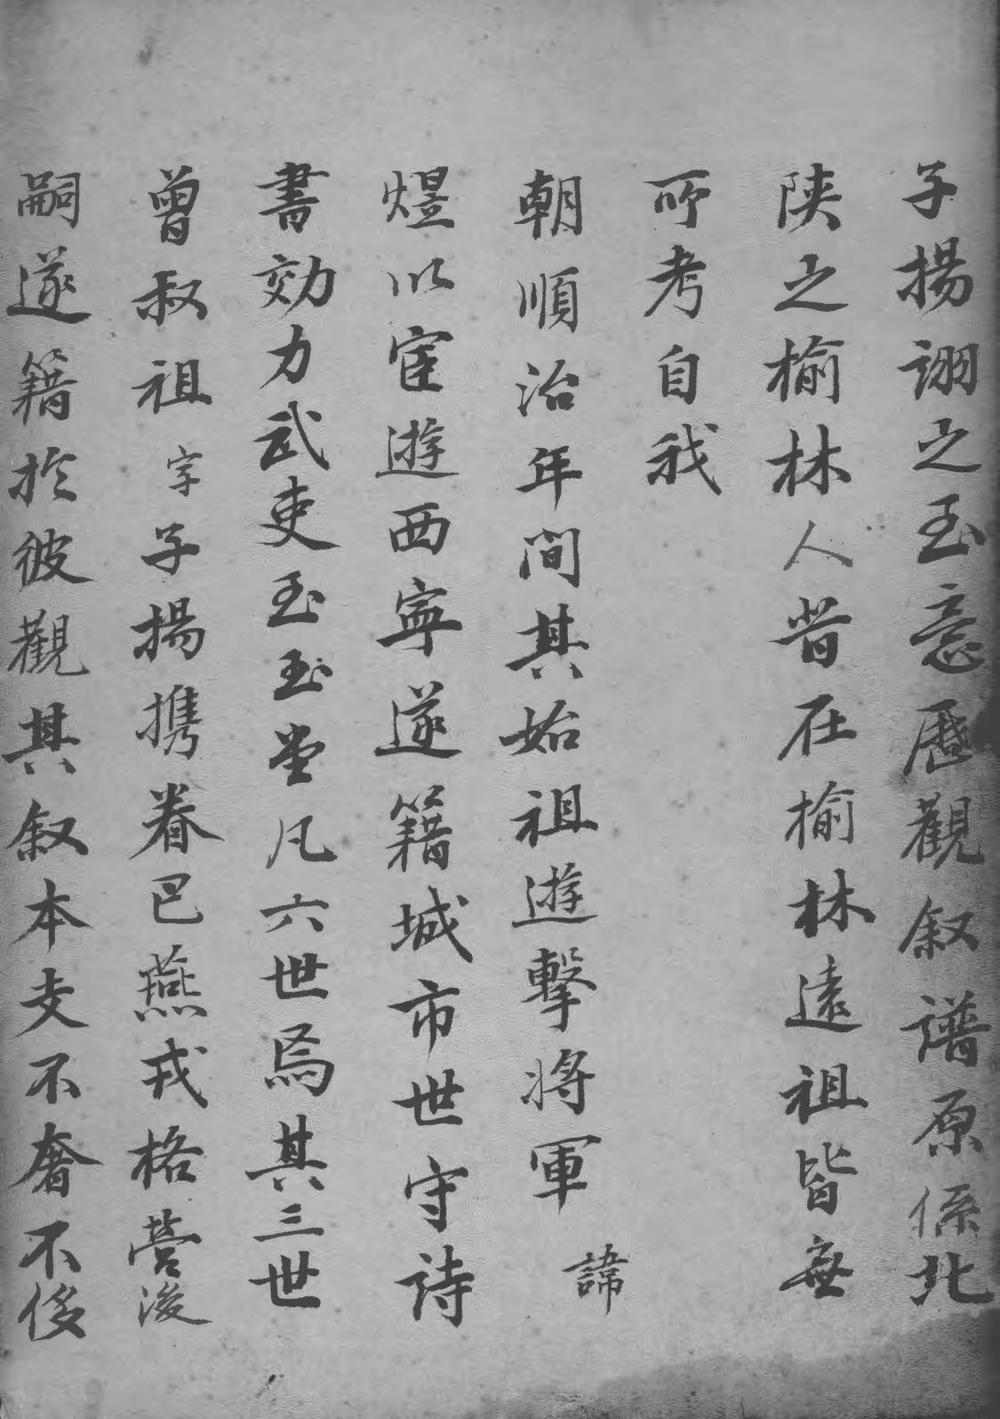 子揚詡之玉意歷觀叙譜原係北
陕之榆林人昔在榆林遠祖皆無
所考自我
朝順治年間其始祖遊擊將軍諱
煜以宦遊西寧遂籍城市世守詩
書効力武吏玉玉堂凡六世焉其三世
曾叔祖字子揚携眷巴燕戎格营後
嗣遂籍於彼觀其叙本支不奢不侈